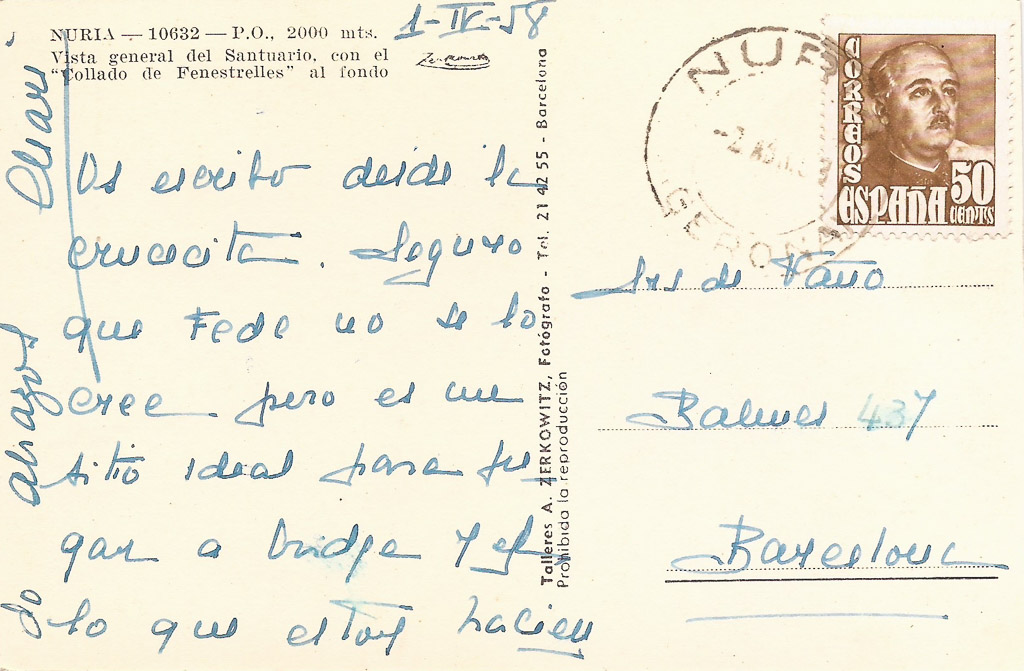 NURIA — 10632 — P.O., 2000 mts.
Vista general del Santuario, con el
"Collado de Fenestrelles" al fondo
1-IV-58
Os escribo desde la
crucecita. Seguro
que Fede no se lo
cree pero es un
sitio ideal para ju
gar a bridge y es
lo que estoy hacien
do
abrazos
Talleres A. ZERKOWITZ, Fotógrafo - Tel. 21 42 55 - Barcelona
Prohibida la reproducción
NUR
GERONA
CORREOS
ESPAÑA
50
CENTS
Srs de Vaño
Balmes 437
Barcelona